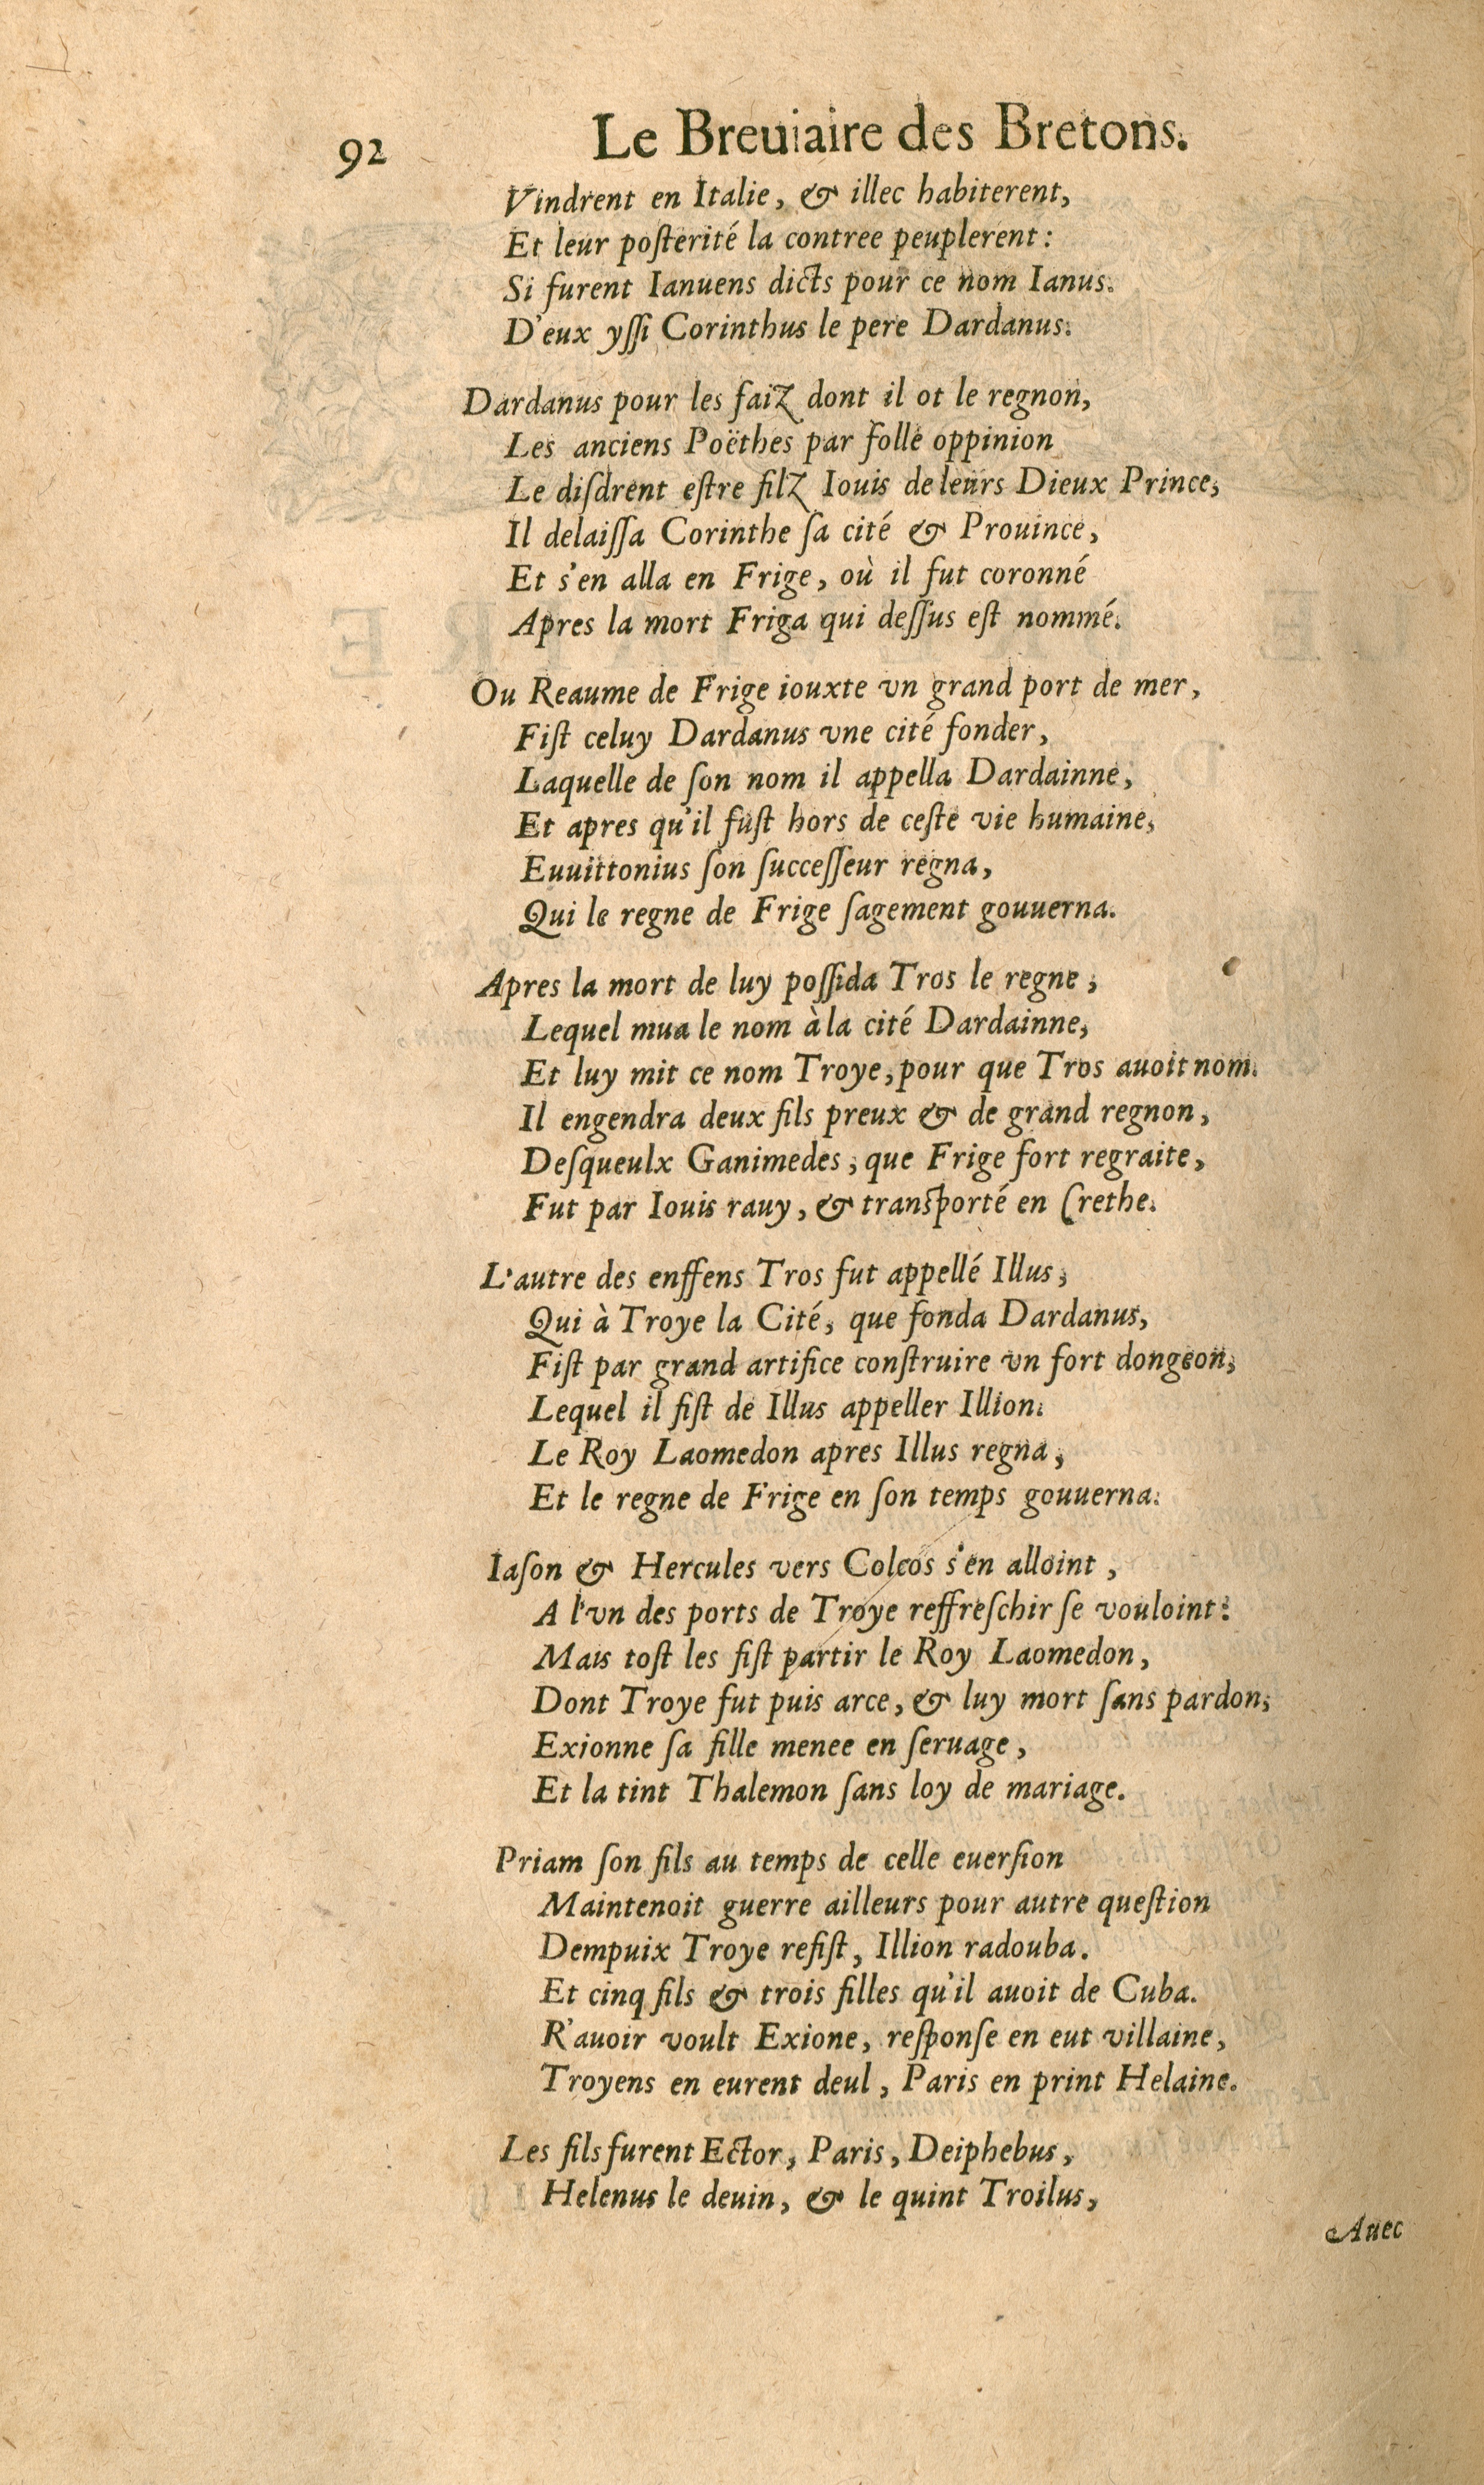 92 Le Breuiaire des Bretons.
Vindrent en Italie, & illec habiterent,
Et leur poſterité la contree peuplerent:
Si furent Ianuens dicts pour ce nom Ianus.
D'eux yſſi Corinthus le pere Dardanus.
Dardanus pour les faiz dont il ot le regnon,
Les anciens Poëthes par folle oppinion
Le diſdrent eſtre filz Iouis de leurs Dieux Prince,
Il delaiſſa Corinthe ſa cité & Prouince,
Et s'en alla en Frige, où il fut coronné
Apres la mort Friga qui deſſus eſt nommé.
Ou Reaume de Frige iouxte vn grand port de mer,
Fiſt celuy Dardanus vne cité fonder,
Laquelle de ſon nom il appella Dardainne,
Et apres qu'il fuſt hors de ceſte vie humaine,
Euuittonius ſon ſucceſſeur regna,
Qui le regne de Frige ſagement gouuerna.
Apres la mort de luy poſſida Tros le regne,
Lequel mua le nom à la cité Dardainne,
Et luy mit ce nom Troye, pour que Tros auoit nom.
Il engendra deux fils preux & de grand regnon,
Deſqueulx Ganimedes, que Frige fort regraite,
Fut par Iouis rauy, & tranſporté en Crethe.
L'autre des enffens Tros fut appellé Illus,
Qui à Troye la Cité, que fonda Dardanus,
Fiſt par grand artifice conſtruire vn fort dongeon,
Lequel il fiſt de Illus appeller Illion.
Le Roy Laomedon apres Illus regna,
Et le regne de Frige en ſon temps gouuerna.
Iaſon & Hercules vers Colcos s'en alloint,
A l'vn des ports de Troye reffreſchir ſe vouloint:
Mais toſt les fiſt partir le Roy Laomedon,
Dont Troye fut puis arce, & luy mort ſans pardon,
Exionne ſa fille menee en ſeruage,
Et la tint Thalemon ſans loy de mariage.
Priam ſon fils au temps de celle euerſion
Maintenoit guerre ailleurs pour autre queſtion
Dempuix Troye refiſt, Illion radouba.
Et cinq fils & trois filles qu'il auoit de Cuba.
R'auoir voult Exione, reſponſe en eut villaine,
Troyens en eurent deul, Paris en print Helaine.
Les fils furent Ector, Paris, Deiphebus,
Helenus le deuin, & le quint Troilus,
Auec